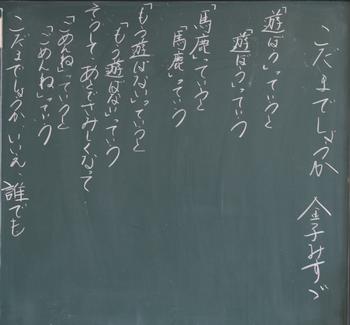 こだまでしょうか 金子みすゞ
「遊ぼう」っていうと
「遊ぼう」っていう
「馬鹿」っていうと
「馬鹿」っていう
「もう遊ばない」っていうと
「もう遊ばない」っていう
そうして あとでさみしくなって
「ごめんね」っていうと
「ごめんね」っていう
こだまでしょうか、いいえ、誰でも